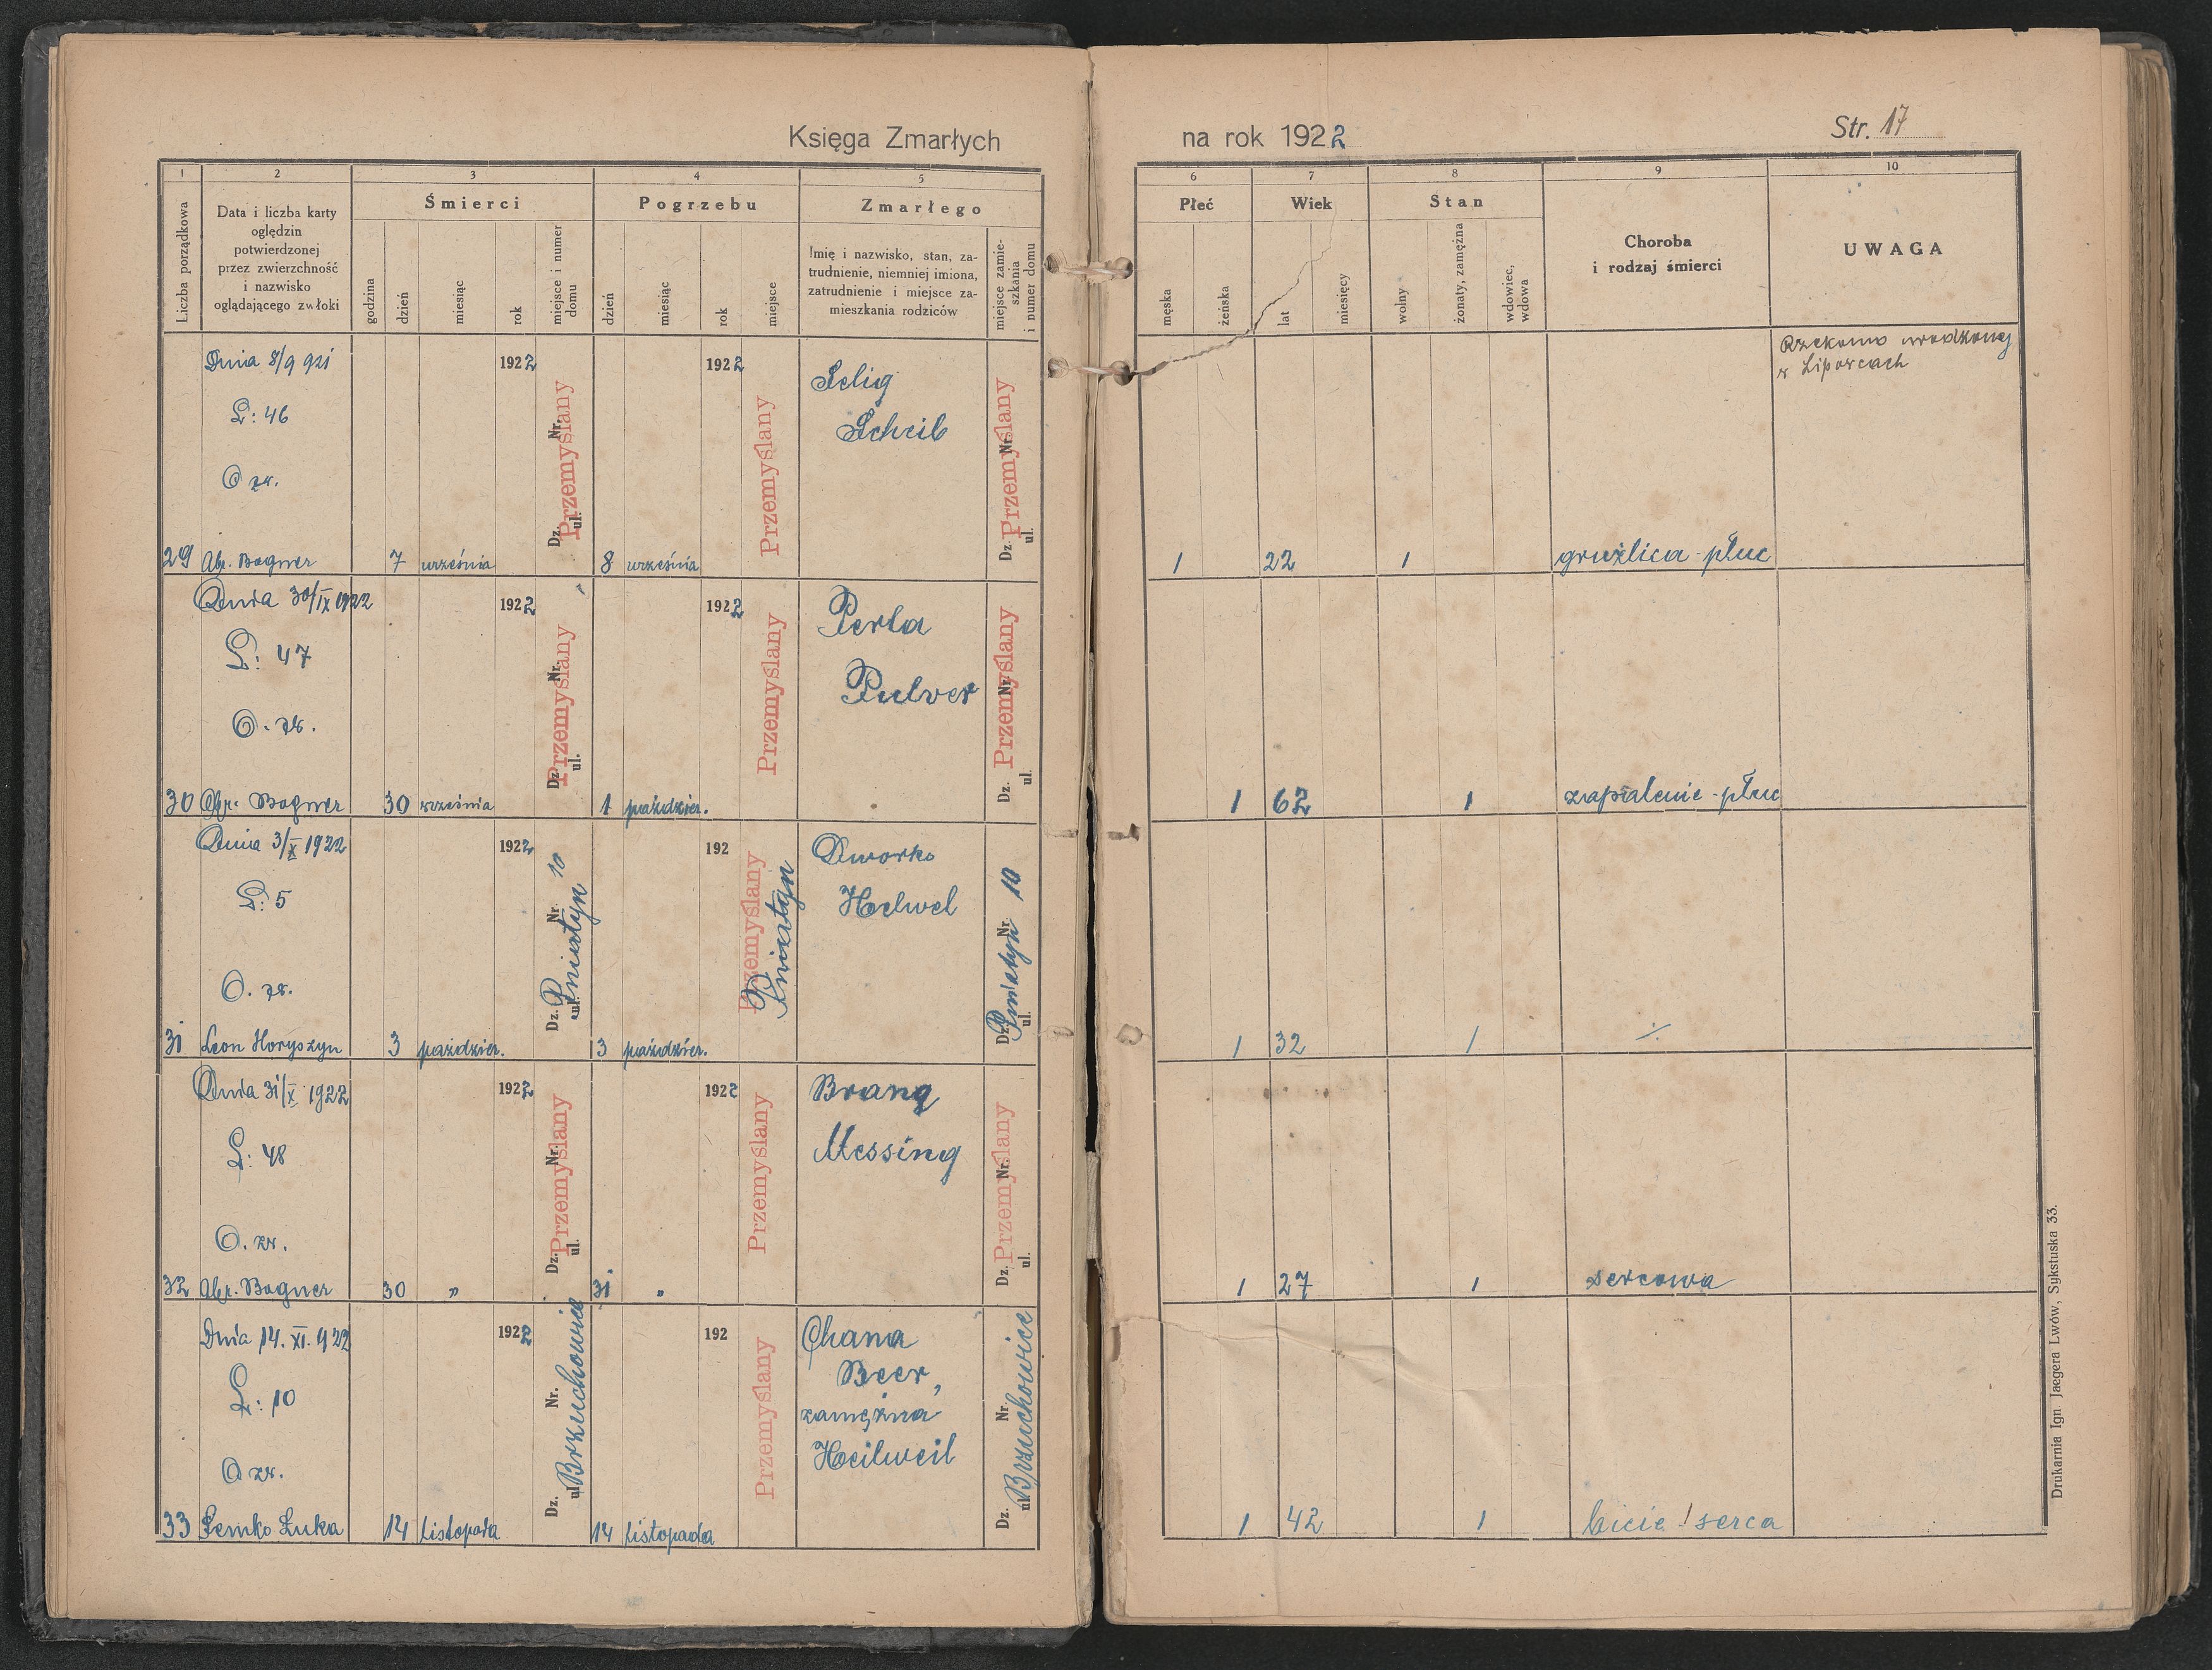 Księga Zmarłych
na rok 1922
Str. 17
1 2 3 4 5
6 7 8 9 10
Liczba porządkowa
Data i liczba karty
oględzin
potwierdzonej
przez zwierzchność
i nazwisko
oglądającego zwłoki
Śmierci
godzina
dzień
miesiąc
rok
miejsce i numer
domu
Pogrzebu
dzień
miesiąc
rok
miejsce
Zmarłego
Imię i nazwisko, stan, za-
trudnienie, niemniej imiona,
zatrudnienie i miejsce za-
mieszkania rodziców
miejsce zamie-
szkania
i numer domu
Płeć
męska
żeńska
Wiek
lat
miesięcy
Stan
wolny
żonaty, zamężna
wdowiec,
wdowa
Choroba
i rodzaj śmierci
UWAGA
Dnia 8/9 921
L: 46
O zw.
29 Abr. Bogner
7 września 1922
Dz. Nr.
ul.
Przemyślany
8 września 1922
Przemyślany
Selig
Scheib
Dz. Nr.
ul.
Przemyślany
1 22 1
gruźlica płuc
Rzekomo urodzony
w Liporcach
Dnia 30/IX 1922
L: 47
O. zw.
30 Abr. Bogner
30 września 1922
Dz. Nr.
ul.
Przemyślany
1 paździer. 1922
Przemyślany
Perla
Pulver
Dz. Nr.
ul.
Przemyślany
1 62 1
zapalenie płuc
Dnia 3/X 1922
L: 5
O. zw.
31 Leon Horyszyn
3 paździer. 1922
Dz. Nr. 10
ul.
Pniatyn
3 paździer. 192
Przemyślany
Pniatyn
Dworko
Helwel
Dz. Nr. 10
ul.
Pniatyn
1 32 1
·/·
Dnia 31/X 1922
L: 48
O. zw.
32 Abr. Bogner
30 " 1922
Dz. Nr.
ul.
Przemyślany
31 " 1922
Przemyślany
Brang
Messing
Dz. Nr.
ul.
Przemyślany
1 27 1
sercowa
Dnia 14. XI. 922
L: 10
O zw.
33 Semko Łuka
14 listopada 1922
Dz. Nr.
ul.
Brzuchowice
14 listopada 192
Przemyślany
Chana
Beer,
zamężna
Heilweil
Dz. Nr.
ul.
Brzuchowice
1 42 1
bicie serca
Drukarnia Ign. Jaegera Lwów, Sykstuska 33.